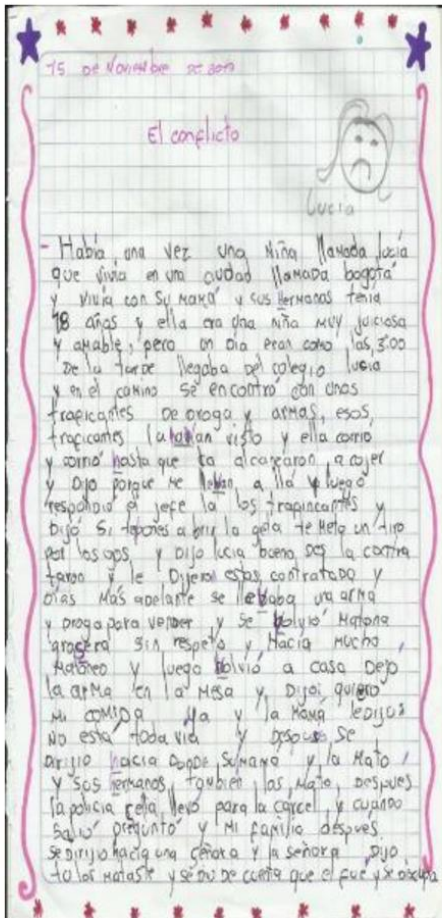 15 de Noviembre de
El conflicto
Lucia
- Había una vez una Niña llamada lucia
que vivia en una ciudad llamada bogotá
y vivia con su mamá y sus hermanas tenia
18 años y ella era una niña muy juiciosa
y amable, pero un dia eran como las 3:00
de la tarde llegaba del colegio lucia
y en el camino se encontró con unos
traficantes de droga y armas, esos
traficantes la habian visto y ella corrió
y corrió hasta que la alcanzaron a cojer
y dijo porque me a lla y luego
respondio el jefe la los traficantes y
Dijó si a brir la te meto un tiro
por los ojos y Dijo lucia bueno
y le Dijeron estas contratado y
dias mas adelante se llebaba una arma
y droga para vender y se bolvió matona
grosera sin respeto y Hacia mucho
y luego bolvió a casa Dejo
la arma en la mesa y Dijoi quiero
mi comida ya y la mamá le Dijoi
No esta toda via y despues se
dirijio hacia donde su mama y la mato
y sos hermanos tambien los mato, despues
la policia se la llevo para la carcel y cuando
salió preguntó y mi familia después
se dirijio hacia una señora y la señora Dijo
tu los mataste y se dio de cuenta que el fue y se